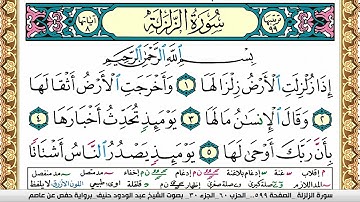 سُورَةُ الزَّلْزَلَةِ
ترتيبها ٩٩
آياتها ٨
بِسْمِ اللَّهِ الرَّحْمَٰنِ الرَّحِيمِ
إِذَا زُلْزِلَتِ الْأَرْضُ زِلْزَالَهَا ١ وَأَخْرَجَتِ الْأَرْضُ أَثْقَالَهَا
٢ وَقَالَ الْإِنسَانُ مَا لَهَا ٣ يَوْمَئِذٍ تُحَدِّثُ أَخْبَارَهَا ٤
بِأَنَّ رَبَّكَ أَوْحَىٰ لَهَا ٥ يَوْمَئِذٍ يَصْدُرُ النَّاسُ أَشْتَاتًا
سورة الزلزلة - الصفحة ٥٩٩ - الحزب ٦٠ - الجزء ٣٠ - بصوت الشيخ عبد الودود حنيف - برواية حفص عن عاصم